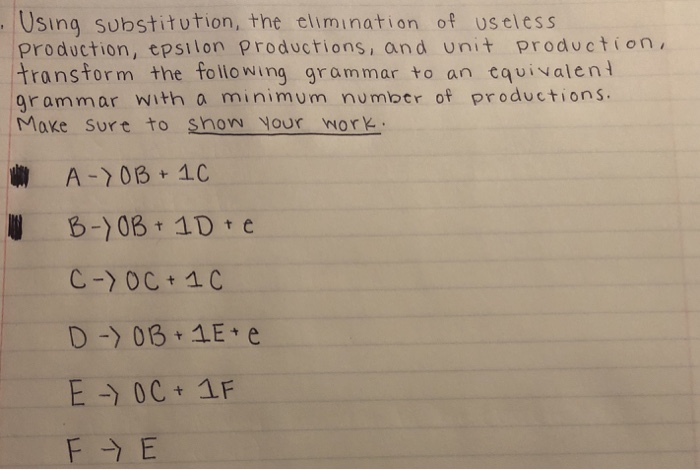 . Using substitution, the elimination of useless
production, epsilon productions, and unit production,
transform the following grammar to an equivalent
grammar with a minimum number of productions.
Make sure to show your work.
A -> 0B + 1C
B -> 0B + 1D + e
C -> 0C + 1C
D -> 0B + 1E + e
E -> 0C + 1F
F -> E